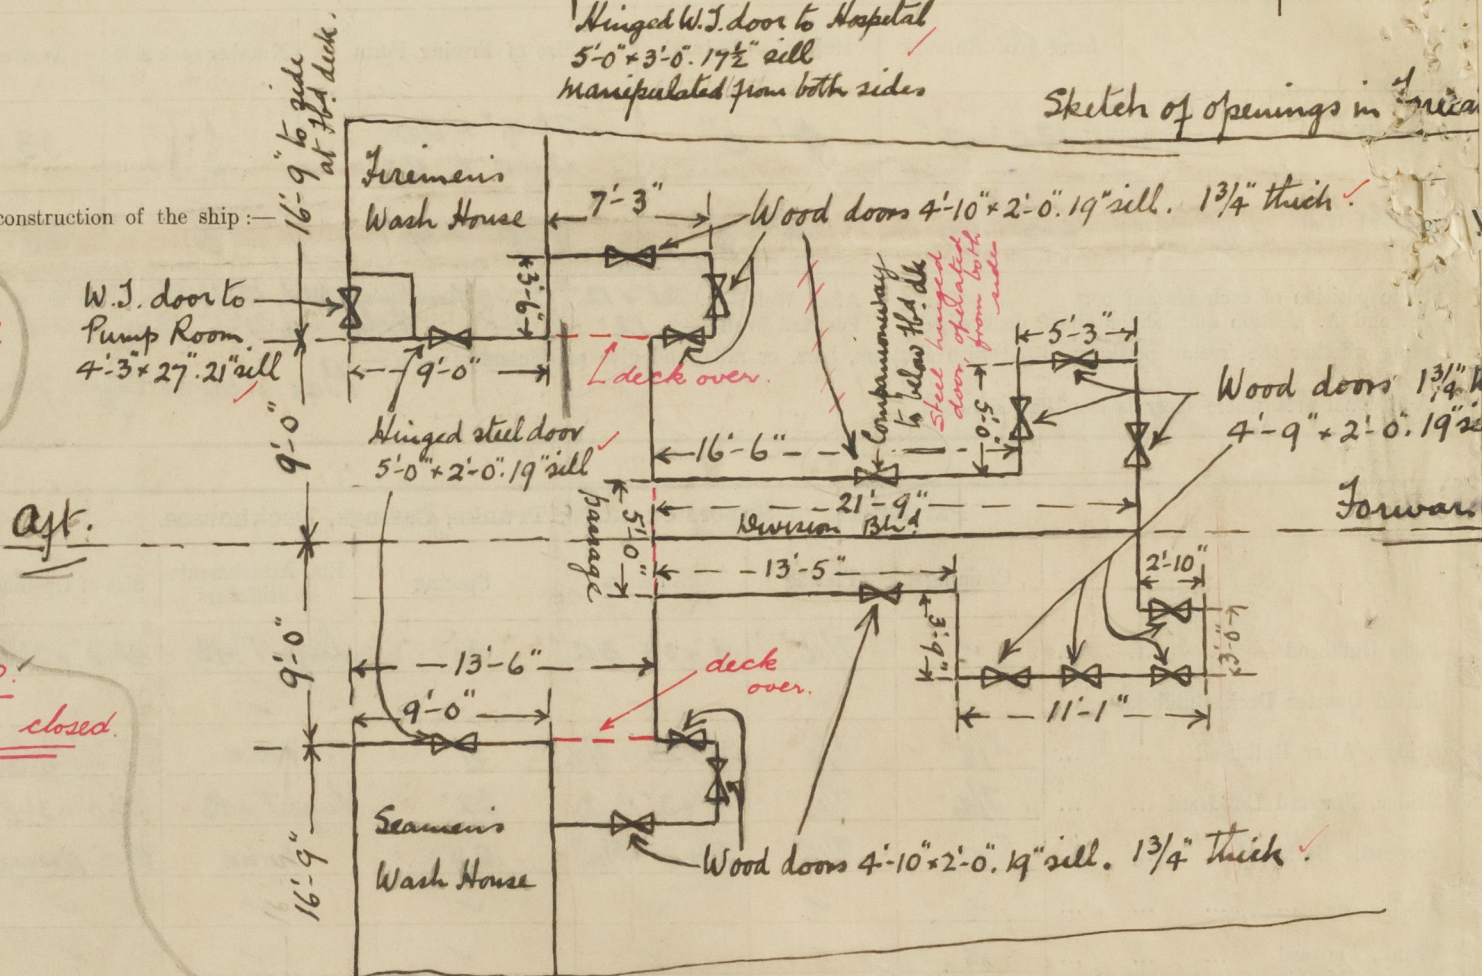 Hinged W.T. door to Hospital
5'-0" × 3'-0". 17½" sill
manipulated from both sides
Sketch of openings in
16'-9" to side
at fbd deck.
Firemen's
Wash House
7'-3"
Wood doors 4'-10" × 2'-0". 19" sill. 1 3/4" thick
construction of the ship :—
3'-6"
W.T. door to
Pump Room
4'-3" × 27". 21" sill
9'-0"
deck over.
Companionway
to below fbd. dk
Steel hinged
door operated
from both
sides
5'-3"
5'-0"
Wood doors 1 3/4"
4'-9" × 2'-0". 19"
Hinged steel door
5'-0" × 2'-0". 19" sill
9'-0"
16'-6"
21'-9"
Division Bhd
Aft.
Forwar
5'-0"
passage
13'-5"
2'-10"
3'-9"
3'-0"
9'-0"
13'-6"
deck
over.
11'-1"
closed.
9'-0"
Seamen's
Wash House
16'-9"
Wood doors 4'-10" × 2'-0". 19" sill. 1 3/4" thick.